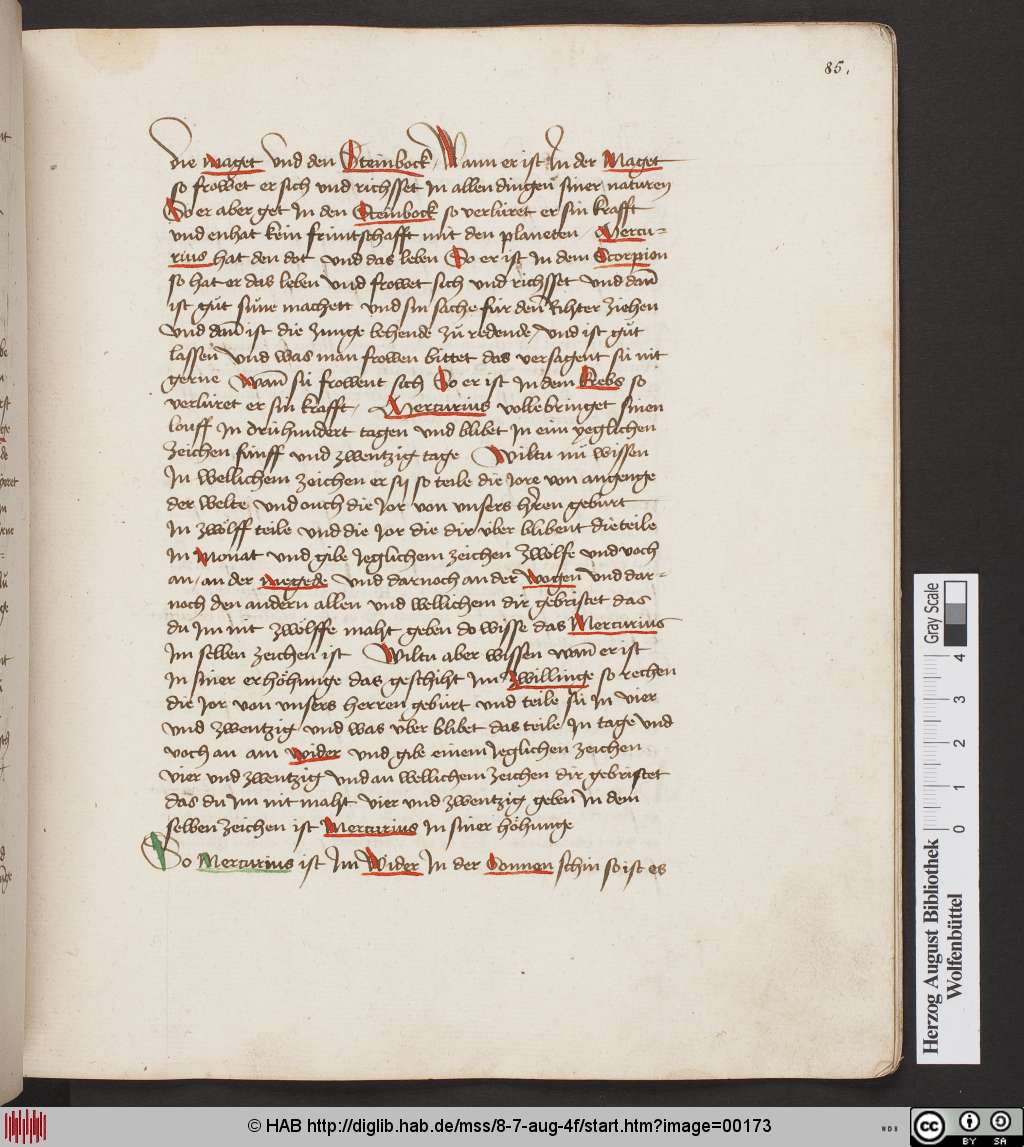 85.
die maget Und den Steinbock / Wann er ist In der Maget
so frowet er sich vnd richsset In allen dingen siner naturen
So er aber get In den Steinbock so verlüret er sin krafft
vnd enhat kein früntschafft mit den planeten / Mercu=
rius hat den dot vnd das leben So er ist In dem Scorpion
so hat er das leben vnd frowet sich vnd richsset vnd dañ
ist gůt süne machett vnd sin sache für den Rihter ziehen
vnd dañ ist die zunge behende zů redende / vnd ist gůt
lassen vnd was man frowen bittet das versagent sü nit
gerne Wañ sü frowent sich So er ist In dem krebs so
verlüret er sin krafft / Mercurius vollebringet sinen
louff In drühundert tagen vnd blibet In eim yeglichen
zeichen fünff vnd zwentzig tage Wiltu nü wissen
In wellichem zeichen er sij so teile die Jore von angenge
der welte vnd ouch die Jor von vnsers h̄ren geburt
In zwölff teile vnd die Jor die dir über blibent die teile
In Monat vnd gibe Jeglichem zeichen zwölfe vnd voch
an / an der megede vnd darnoch an der wogen vnd dar=
noch den andern allen vnd wellichem dir gebristet das
du Im nit zwölffe maht geben do wisse das Mercurius
Im selben zeichen ist Wiltu aber wissen wañ er ist
In siner erhöhunge das geschiht Im Zwillinge so rechen
die Jor von vnsers herren gebürt vnd teile sü In vier
vnd zwentzig vnd was über blibet das teile In tage vnd
voch an am wider vnd gibe einem Jeglichen zeichen
vier vnd zwentzig vnd an wellichem zeichen dir gebristet
das du Im nit maht vier vnd zwentzig geben In dem
selben zeichen ist Mercurius In siner höhunge
So Mercurius ist Im Wider In der Sonnen schin so ist es
Herzog August Bibliothek
Wolfenbüttel
Gray Scale
0 1 2 3 4
© HAB http://diglib.hab.de/mss/8-7-aug-4f/start.htm?image=00173
WDB
cc BY SA